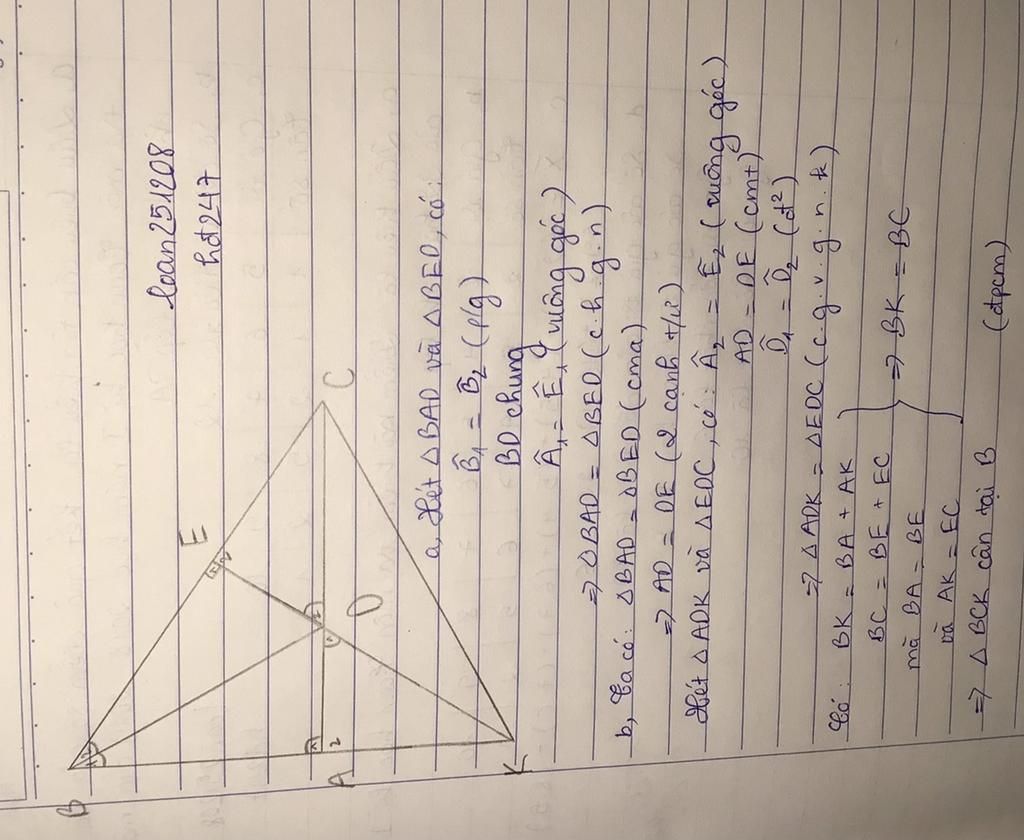 loan251208
hđ247
B
E
C
D
A
K
1
2
a, Xét △BAD và △BED, có:
B̂₁ = B̂₂ (f/g)
BD chung
Â₁ = Ê₁ (vuông góc)
=> △BAD = △BED (c.h.g.n)
b, Ta có: △BAD = △BED (cma)
=> AD = DE (2 cạnh t/ứ)
Xét △ADK và △EDC, có: Â₂ = Ê₂ (vuông góc)
AD = DE (cmt)
D̂₁ = D̂₂ (đ²)
=> △ADK = △EDC (c.g.v.g.n.k)
Có: BK = BA + AK
BC = BE + EC
mà BA = BE
và AK = EC
=> BK = BC
=> △BCK cân tại B (đpcm)